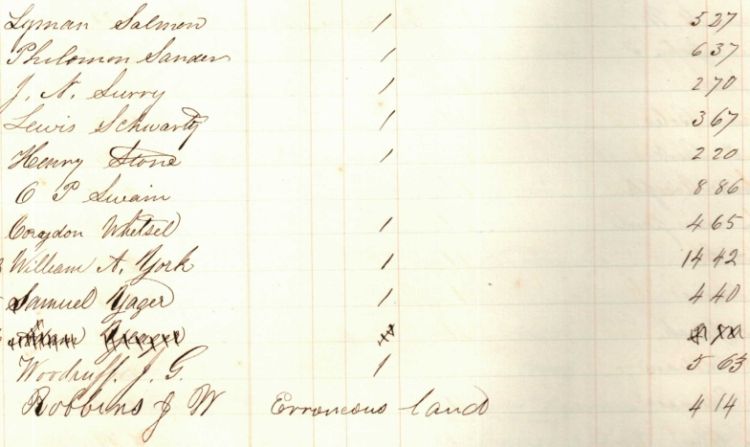 Lyman Salmon 1 527
Philomon Sanders 1 637
J. N. Surry 1 270
Lewis Schwartz 1 367
Henry Stone 1 220
O P Swain 886
Corydon Whetsel 1 465
William A. York 1 1442
Samuel Yager 1 440
Yeager
Woodruff. J. G. 1 563
Robbins J W Erroneous land 414